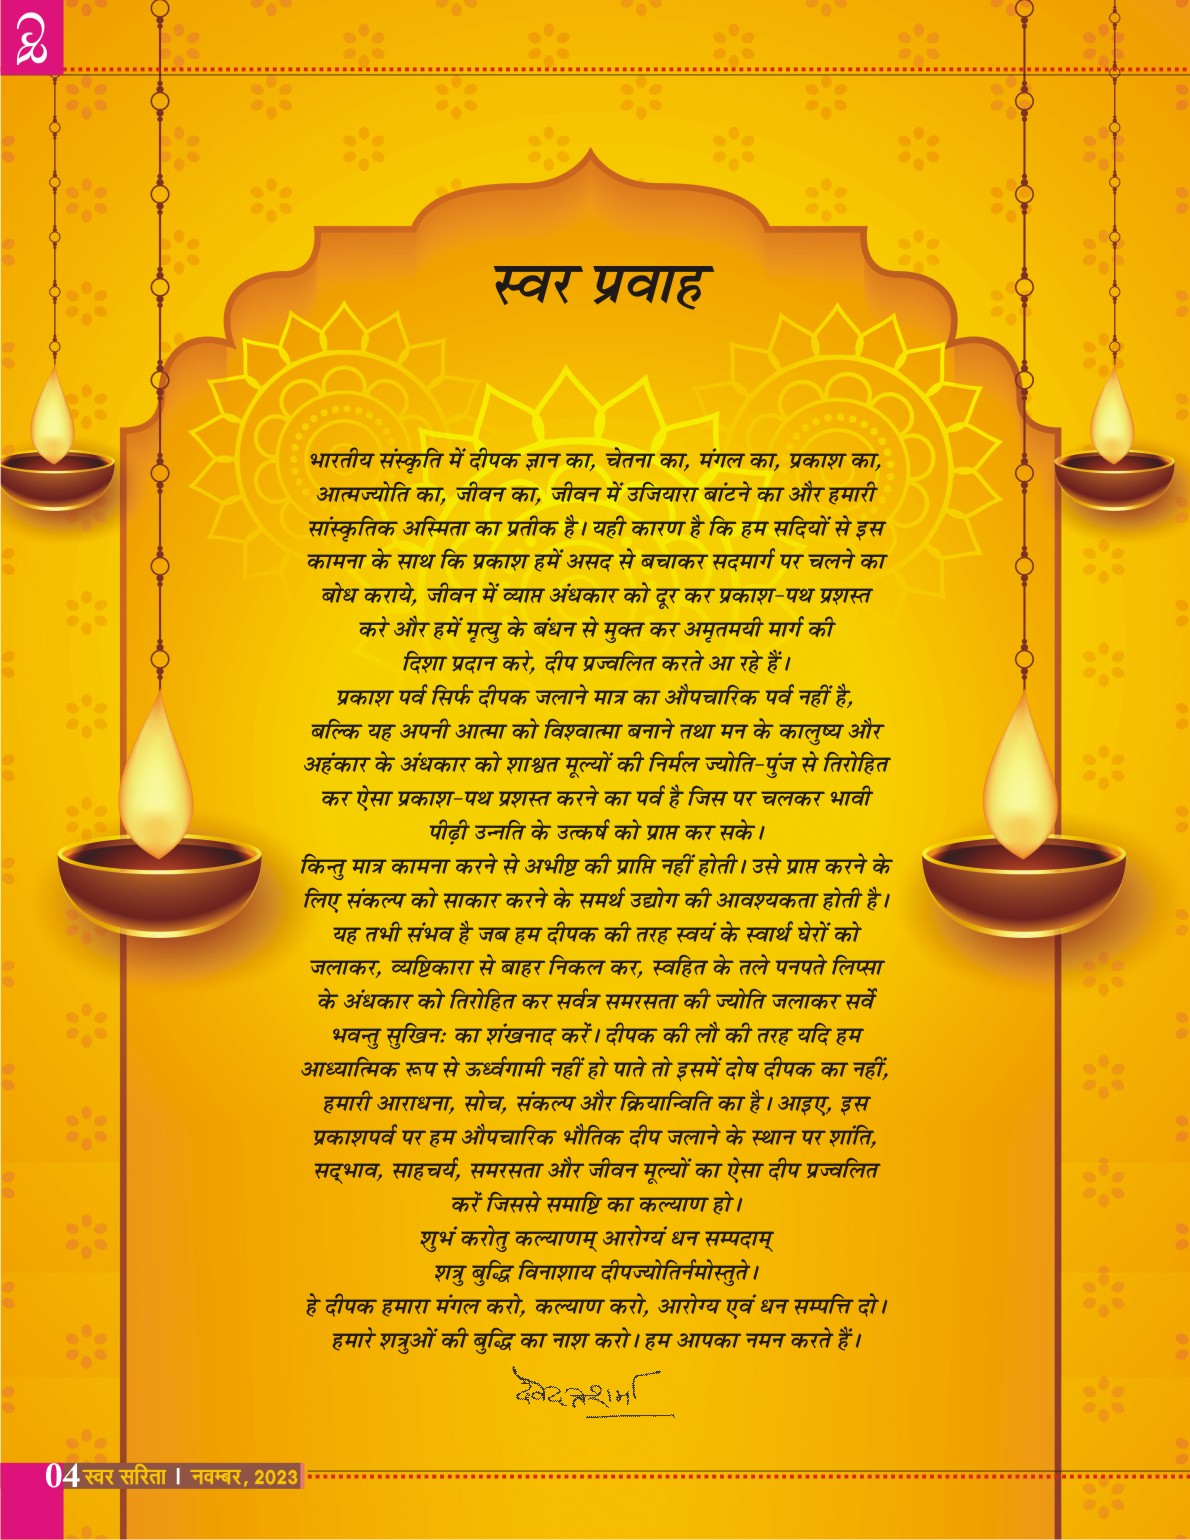 स्वर प्रवाह
भारतीय संस्कृति में दीपक ज्ञान का, चेतना का, मंगल का, प्रकाश का,
आत्मज्योति का, जीवन का, जीवन में उजियारा बांटने का और हमारी
सांस्कृतिक अस्मिता का प्रतीक है। यही कारण है कि हम सदियों से इस
कामना के साथ कि प्रकाश हमें असद से बचाकर सदमार्ग पर चलने का
बोध कराये, जीवन में व्याप्त अंधकार को दूर कर प्रकाश-पथ प्रशस्त
करे और हमें मृत्यु के बंधन से मुक्त कर अमृतमयी मार्ग की
दिशा प्रदान करे, दीप प्रज्वलित करते आ रहे हैं।
प्रकाश पर्व सिर्फ दीपक जलाने मात्र का औपचारिक पर्व नहीं है,
बल्कि यह अपनी आत्मा को विश्वात्मा बनाने तथा मन के कालुष्य और
अहंकार के अंधकार को शाश्वत मूल्यों की निर्मल ज्योति-पुंज से तिरोहित
कर ऐसा प्रकाश-पथ प्रशस्त करने का पर्व है जिस पर चलकर भावी
पीढ़ी उन्नति के उत्कर्ष को प्राप्त कर सके।
किन्तु मात्र कामना करने से अभीष्ट की प्राप्ति नहीं होती। उसे प्राप्त करने के
लिए संकल्प को साकार करने के समर्थ उद्योग की आवश्यकता होती है।
यह तभी संभव है जब हम दीपक की तरह स्वयं के स्वार्थ घेरों को
जलाकर, व्यष्टिकारा से बाहर निकल कर, स्वहित के तले पनपते लिप्सा
के अंधकार को तिरोहित कर सर्वत्र समरसता की ज्योति जलाकर सर्वे
भवन्तु सुखिनः का शंखनाद करें। दीपक की लौ की तरह यदि हम
आध्यात्मिक रूप से ऊर्ध्वगामी नहीं हो पाते तो इसमें दोष दीपक का नहीं,
हमारी आराधना, सोच, संकल्प और क्रियान्विति का है। आइए, इस
प्रकाशपर्व पर हम औपचारिक भौतिक दीप जलाने के स्थान पर शांति,
सद्‌भाव, साहचर्य, समरसता और जीवन मूल्यों का ऐसा दीप प्रज्वलित
करें जिससे समाष्टि का कल्याण हो।
शुभं करोतु कल्याणम् आरोग्यं धन सम्पदाम्
शत्रु बुद्धि विनाशाय दीपज्योतिर्नमोस्तुते।
हे दीपक हमारा मंगल करो, कल्याण करो, आरोग्य एवं धन सम्पत्ति दो।
हमारे शत्रुओं की बुद्धि का नाश करो। हम आपका नमन करते हैं।
देवदत्त शर्मा
04 स्वर सरिता । नवम्बर, 2023